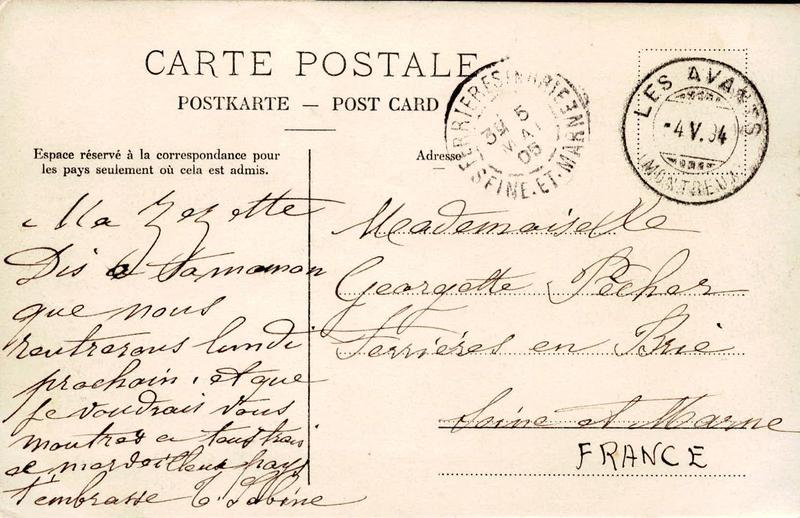 CARTE POSTALE
POSTKARTE — POST CARD
Espace réservé à la correspondance pour
les pays seulement où cela est admis.
Adresse
FERRIERES EN BRIE
5
MAI
05
SEINE-ET-MARNE
LES AVANTS
-4 V. 04
(MONTREUX)
Ma Zezette
Dis a ta maman
que nous
rentrerons lundi
prochain, et que
je voudrais vous
montrer a tous trois
ce merveilleux pays
t'embrasse Sabine
Mademoiselle
Georgette Péchar
Ferriéres en Brie
Seine et Marne
FRANCE